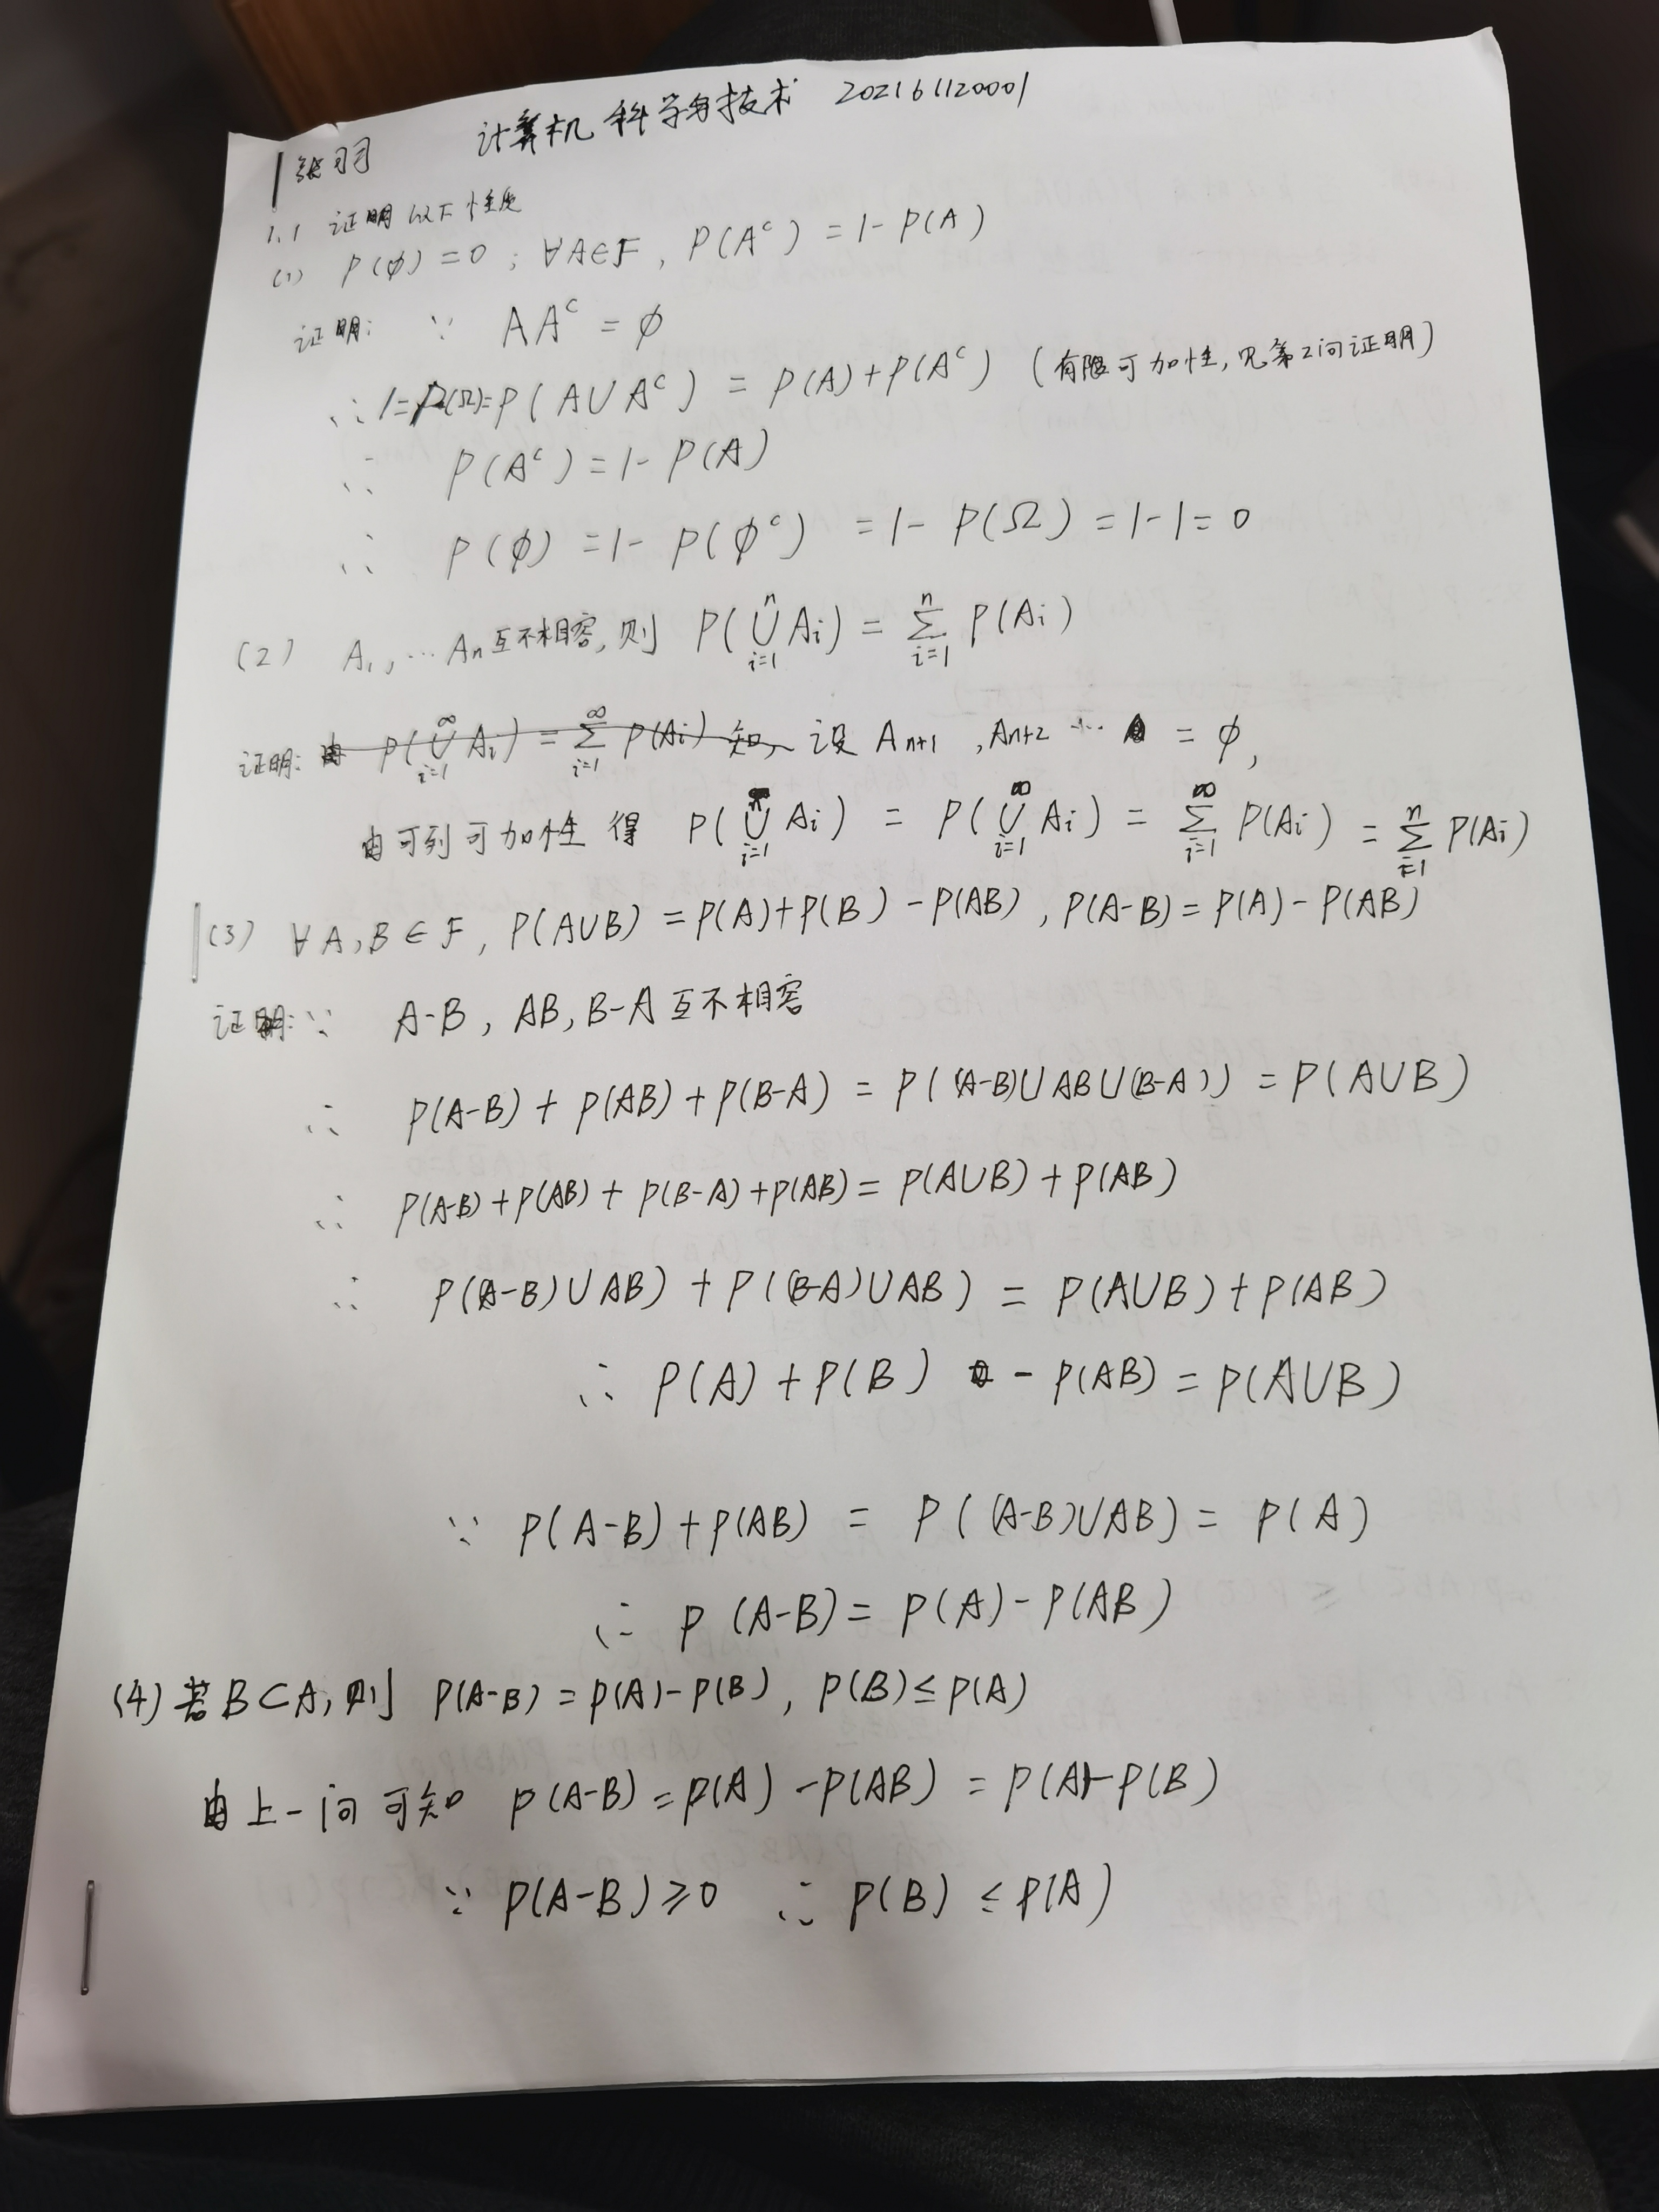 张羽 计算机科学与技术 202161120001
1.1 证明以下性质
(1) P(∅)=0; ∀A∈F, P(Aᶜ)=1-P(A)
证明: ∵ AAᶜ=∅
∴ 1=P(Ω)=P(A∪Aᶜ)=P(A)+P(Aᶜ) (有限可加性,见第2问证明)
∴ P(Aᶜ)=1-P(A)
∴ P(∅)=1-P(∅ᶜ)=1-P(Ω)=1-1=0
(2) A₁,…Aₙ互不相容,则 P(⋃ᵢ₌₁ⁿ Aᵢ)=∑ᵢ₌₁ⁿ P(Aᵢ)
证明: 由 P(⋃ᵢ₌₁^∞ Aᵢ)=∑ᵢ₌₁^∞ P(Aᵢ) 知, 设 Aₙ₊₁,Aₙ₊₂…=∅,
由可列可加性得 P(⋃ᵢ₌₁ⁿ Aᵢ)=P(⋃ᵢ₌₁^∞ Aᵢ)=∑ᵢ₌₁^∞ P(Aᵢ)=∑ᵢ₌₁ⁿ P(Aᵢ)
(3) ∀A,B∈F, P(A∪B)=P(A)+P(B)-P(AB), P(A-B)=P(A)-P(AB)
证明: ∵ A-B, AB, B-A互不相容
∴ P(A-B)+P(AB)+P(B-A)=P((A-B)∪AB∪(B-A))=P(A∪B)
∴ P(A-B)+P(AB)+P(B-A)+P(AB)=P(A∪B)+P(AB)
∴ P((A-B)∪AB)+P((B-A)∪AB)=P(A∪B)+P(AB)
∴ P(A)+P(B)-P(AB)=P(A∪B)
∵ P(A-B)+P(AB)=P((A-B)∪AB)=P(A)
∴ P(A-B)=P(A)-P(AB)
(4) 若B⊂A,则 P(A-B)=P(A)-P(B), P(B)≤P(A)
由上一问可知 P(A-B)=P(A)-P(AB)=P(A)-P(B)
∵ P(A-B)≥0 ∴ P(B)≤P(A)